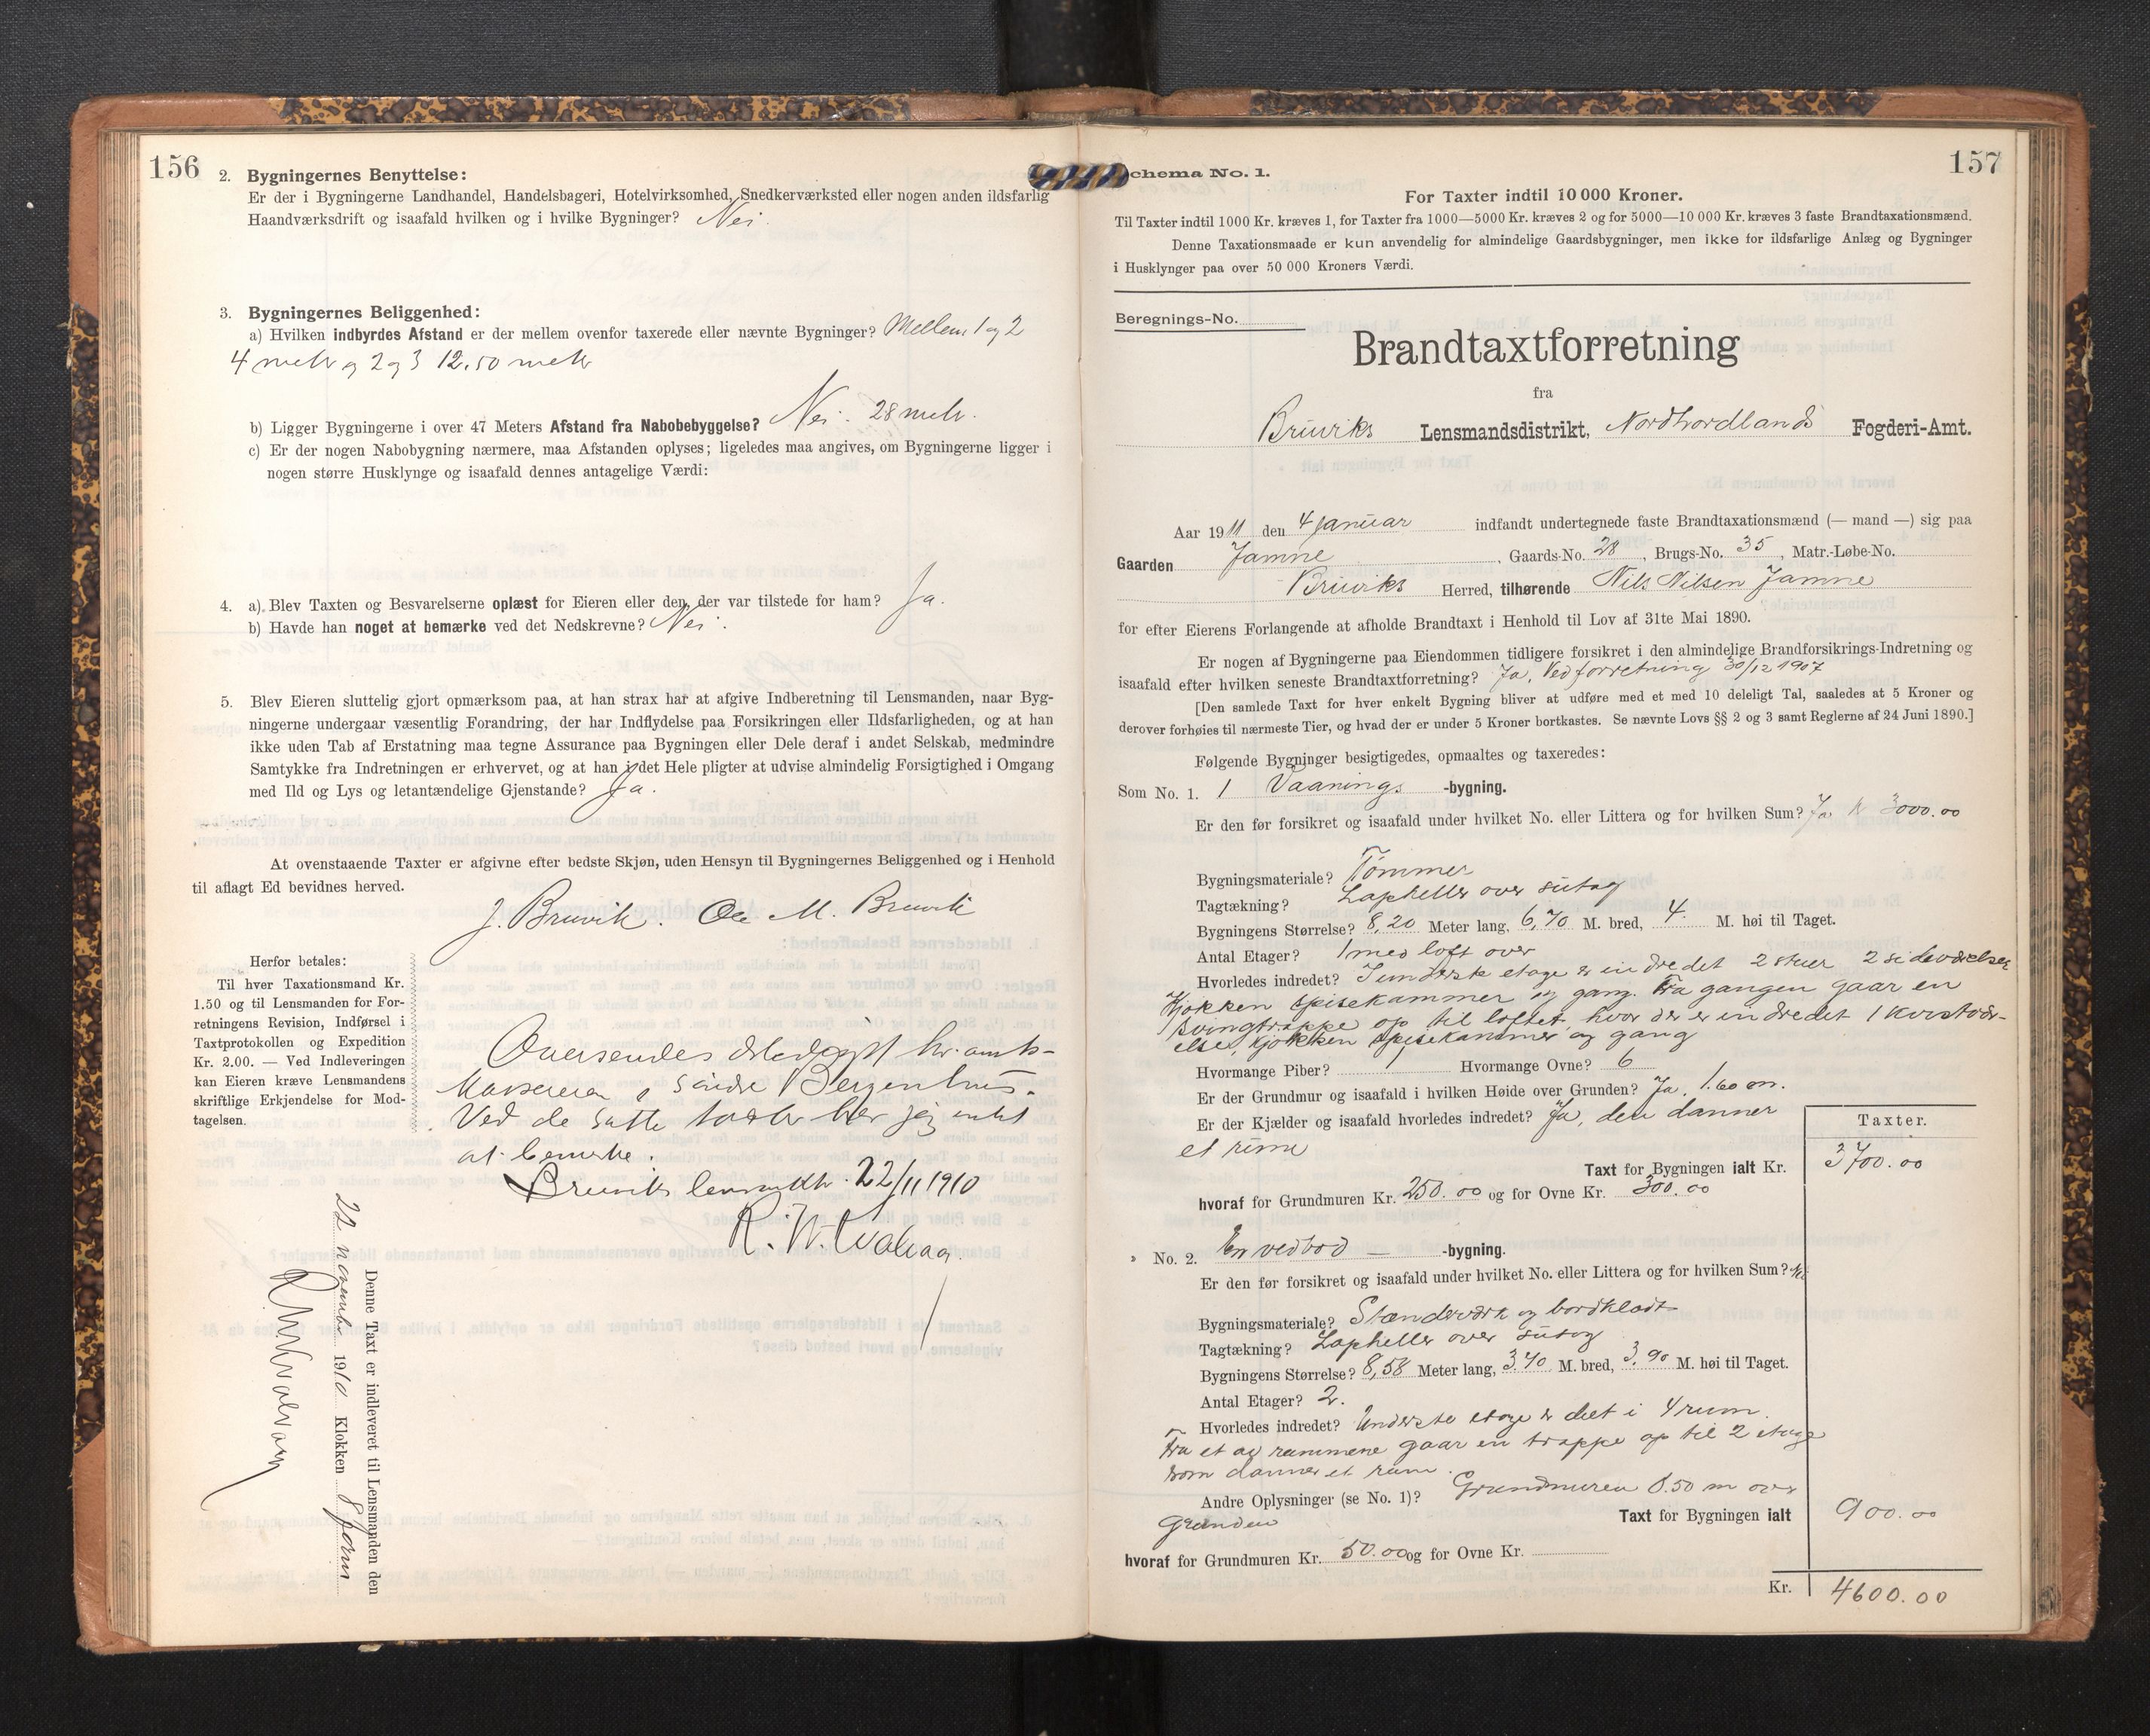 156
2. Bygningernes Benyttelse:
Er der i Bygningerne Landhandel, Handelsbageri, Hotelvirksomhed, Snedkerværksted eller nogen anden ildsfarlig
Haandværksdrift og isaafald hvilken og i hvilke Bygninger? Nei.
3. Bygningernes Beliggenhed:
a) Hvilken indbyrdes Afstand er der mellem ovenfor taxerede eller nævnte Bygninger? Mellem 1 og 2
4 metr og 2 og 3 12.50 metr
b) Ligger Bygningerne i over 47 Meters Afstand fra Nabobebyggelse? Nei. 28 metr.
c) Er der nogen Nabobygning nærmere, maa Afstanden oplyses; ligeledes maa angives, om Bygningerne ligger i
nogen større Husklynge og isaafald dennes antagelige Værdi:
4. a) Blev Taxten og Besvarelserne oplæst for Eieren eller den, der var tilstede for ham? Ja.
b) Havde han noget at bemærke ved det Nedskrevne? Nei.
5. Blev Eieren sluttelig gjort opmærksom paa, at han strax har at afgive Indberetning til Lensmanden, naar Byg-
ningerne undergaar væsentlig Forandring, der har Indflydelse paa Forsikringen eller Ildsfarligheden, og at han
ikke uden Tab af Erstatning maa tegne Assurance paa Bygningen eller Dele deraf i andet Selskab, medmindre
Samtykke fra Indretningen er erhvervet, og at han i det Hele pligter at udvise almindelig Forsigtighed i Omgang
med Ild og Lys og letantændelige Gjenstande? Ja.
At ovenstaaende Taxter er afgivne efter bedste Skjøn, uden Hensyn til Bygningernes Beliggenhed og i Henhold
til aflagt Ed bevidnes herved.
J. Bruvik. Ole M. Bruvik
Herfor betales:
Til hver Taxationsmand Kr.
1.50 og til Lensmanden for For-
retningens Revision, Indførsel i
Taxtprotokollen og Expedition
Kr. 2.00. — Ved Indleveringen
kan Eieren kræve Lensmandens
skriftlige Erkjendelse for Mod-
tagelsen.
Oversendes hr. amts-
kasereren i søndre Bergenhus
Ved de satte takster har jeg intet
at bemerke.
Bruviks 22/11 1910
Denne Taxt er indleveret til Lensmanden den
22 november 1910 Klokken 8 form
157
Schema No. 1.
For Taxter indtil 10 000 Kroner.
Til Taxter indtil 1000 Kr. kræves 1, for Taxter fra 1000—5000 Kr. kræves 2 og for 5000—10 000 Kr. kræves 3 faste Brandtaxationsmænd.
Denne Taxationsmaade er kun anvendelig for almindelige Gaardsbygninger, men ikke for ildsfarlige Anlæg og Bygninger
i Husklynger paa over 50 000 Kroners Værdi.
Beregnings-No.
Brandtaxtforretning
fra
Bruviks Lensmandsdistrikt, Nordhordlands Fogderi-Amt.
Aar 1911 den 4 januar indfandt undertegnede faste Brandtaxationsmænd (— mand —) sig paa
Gaarden Jamne, Gaards-No. 28, Brugs-No. 35, Matr.-Løbe-No.
Bruviks Herred, tilhørende Nils Nilsen Jamne
for efter Eierens Forlangende at afholde Brandtaxt i Henhold til Lov af 31te Mai 1890.
Er nogen af Bygningerne paa Eiendommen tidligere forsikret i den almindelige Brandforsikrings-Indretning og
isaafald efter hvilken seneste Brandtaxtforretning? Ja, Ved forretning 30/12 1907
[Den samlede Taxt for hver enkelt Bygning bliver at udføre med et med 10 deleligt Tal, saaledes at 5 Kroner og
derover forhøies til nærmeste Tier, og hvad der er under 5 Kroner bortkastes. Se nævnte Lovs §§ 2 og 3 samt Reglerne af 24 Juni 1890.]
Følgende Bygninger besigtigedes, opmaaltes og taxeredes:
Som No. 1. 1 Vaanings -bygning.
Er den før forsikret og isaafald under hvilket No. eller Littera og for hvilken Sum? Ja k 3000.00
Bygningsmateriale? Tømmer
Tagtækning? Lapheller over sutag
Bygningens Størrelse? 8,20 Meter lang, 6,70 M. bred, 4. M. høi til Taget.
Antal Etager? 1 med loft over
Hvorledes indredet? I underste etage er indredet 2 stuer 2 sideværelser
Kjøkken spisekammer og gang. Fra gangen gaar en
svingtrappe op til loftet hvor der er indredet 1 kvistvær-
else, kjøkken spisekammer og gang
Hvormange Piber? 1 Hvormange Ovne? 6
Er der Grundmur og isaafald i hvilken Høide over Grunden? Ja, 1.60 m.
Er der Kjælder og isaafald hvorledes indredet? Ja, den danner
et rum
Taxter.
Taxt for Bygningen ialt Kr. 3700.00
hvoraf for Grundmuren Kr. 250.00 og for Ovne Kr. 300.00
» No. 2. En vedbod — -bygning.
Er den før forsikret og isaafald under hvilket No. eller Littera og for hvilken Sum?
Bygningsmateriale? Stenderværk og bordklædt
Tagtækning? Lapheller over sutag
Bygningens Størrelse? 8,58 Meter lang, 3.40 M. bred, 3.90 M. høi til Taget.
Antal Etager? 2.
Hvorledes indredet? Underste etage er delt i 4 rum.
Fra et av rummene gaar en trappe op til 2 etage
som danner et rum.
Andre Oplysninger (se No. 1)? Grundmuren 0.50 m over
Grunden
Taxt for Bygningen ialt 900.00
hvoraf for Grundmuren Kr. 50.00 og for Ovne Kr.
Kr. 4600.00